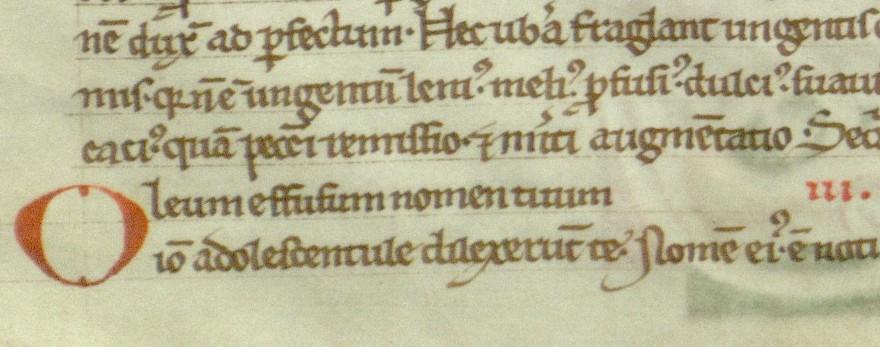 nē dux̄ ad ꝑfectum. Hec ubā fraglant ungentis
mis. q̄ nē ē ungentū leni᷒ meli᷒ ꝓfusi᷒ dulci᷒ suaui
caci᷒ quā peccī remissio. ⁊ mīti augmētatio. Sec̄
Oleum effusum nomen tuum III.
iō adolescentule dilexerūt te. Nomē ei᷒ ē noti